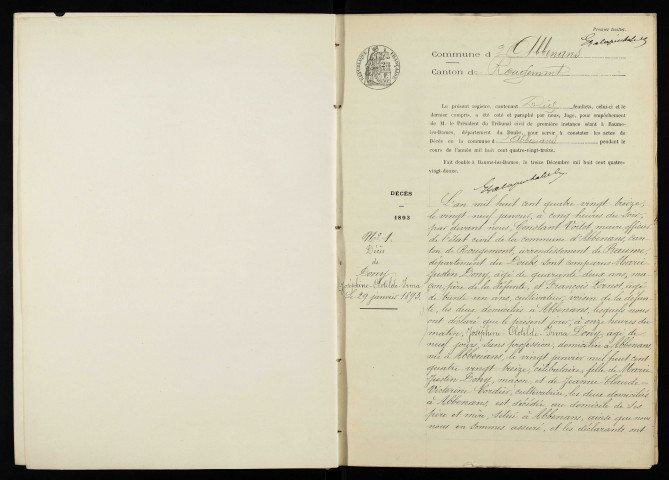 Premier feuillet.
Commune d'Abbenans
Canton de Rougemont
Le présent registre, contenant feuillets, celui-ci et le
dernier compris, a été coté et paraphé par nous, Juge, pour empêchement
de M. le Président du Tribunal civil de première instance séant à Baume-
les-Dames, département du Doubs, pour servir à constater les actes de
Décès en la commune d'Abbenans pendant le
cours de l'année mil huit cent quatre-vingt-treize.
Fait double à Baume-les-Dames, le treize Décembre mil huit cent quatre-
vingt-douze.
DÉCÈS
1893
No 1.
Décès
de
Dony
Joséphine-Clotilde-Irma
le 29 janvier 1893.
L'an mil huit cent quatre vingt treize,
le vingt neuf janvier, à cinq heures du soir,
par devant nous, Constant Voilot maire officier
de l'état civil de la commune d'Abbenans, can-
ton de Rougemont, arrondissement de Baume,
département du Doubs, sont comparus Marie
Justin Dony, âgé de quarante deux ans, ma-
çon, père de la défunte, et François Cornot, âgé
de trente un ans, cultivateur, voisin de la défun-
te, les deux domiciliés à Abbenans, lesquels nous
ont déclaré que le présent jour, à onze heures du
matin, Joséphine Clotilde Irma Dony, âgée de
neuf jours, sans profession, domiciliée à Abbenans,
née à Abbenans, le vingt janvier mil huit cent
quatre vingt treize, célibataire, fille de Marie
Justin Dony, maçon, et de Jeanne Claude
Victorine Cordier, cultivatrice, les deux domiciliés
à Abbenans, est décédée au domicile de ses
père et mère, situé à Abbenans, ainsi que nous
nous en sommes assuré, et les déclarants ont